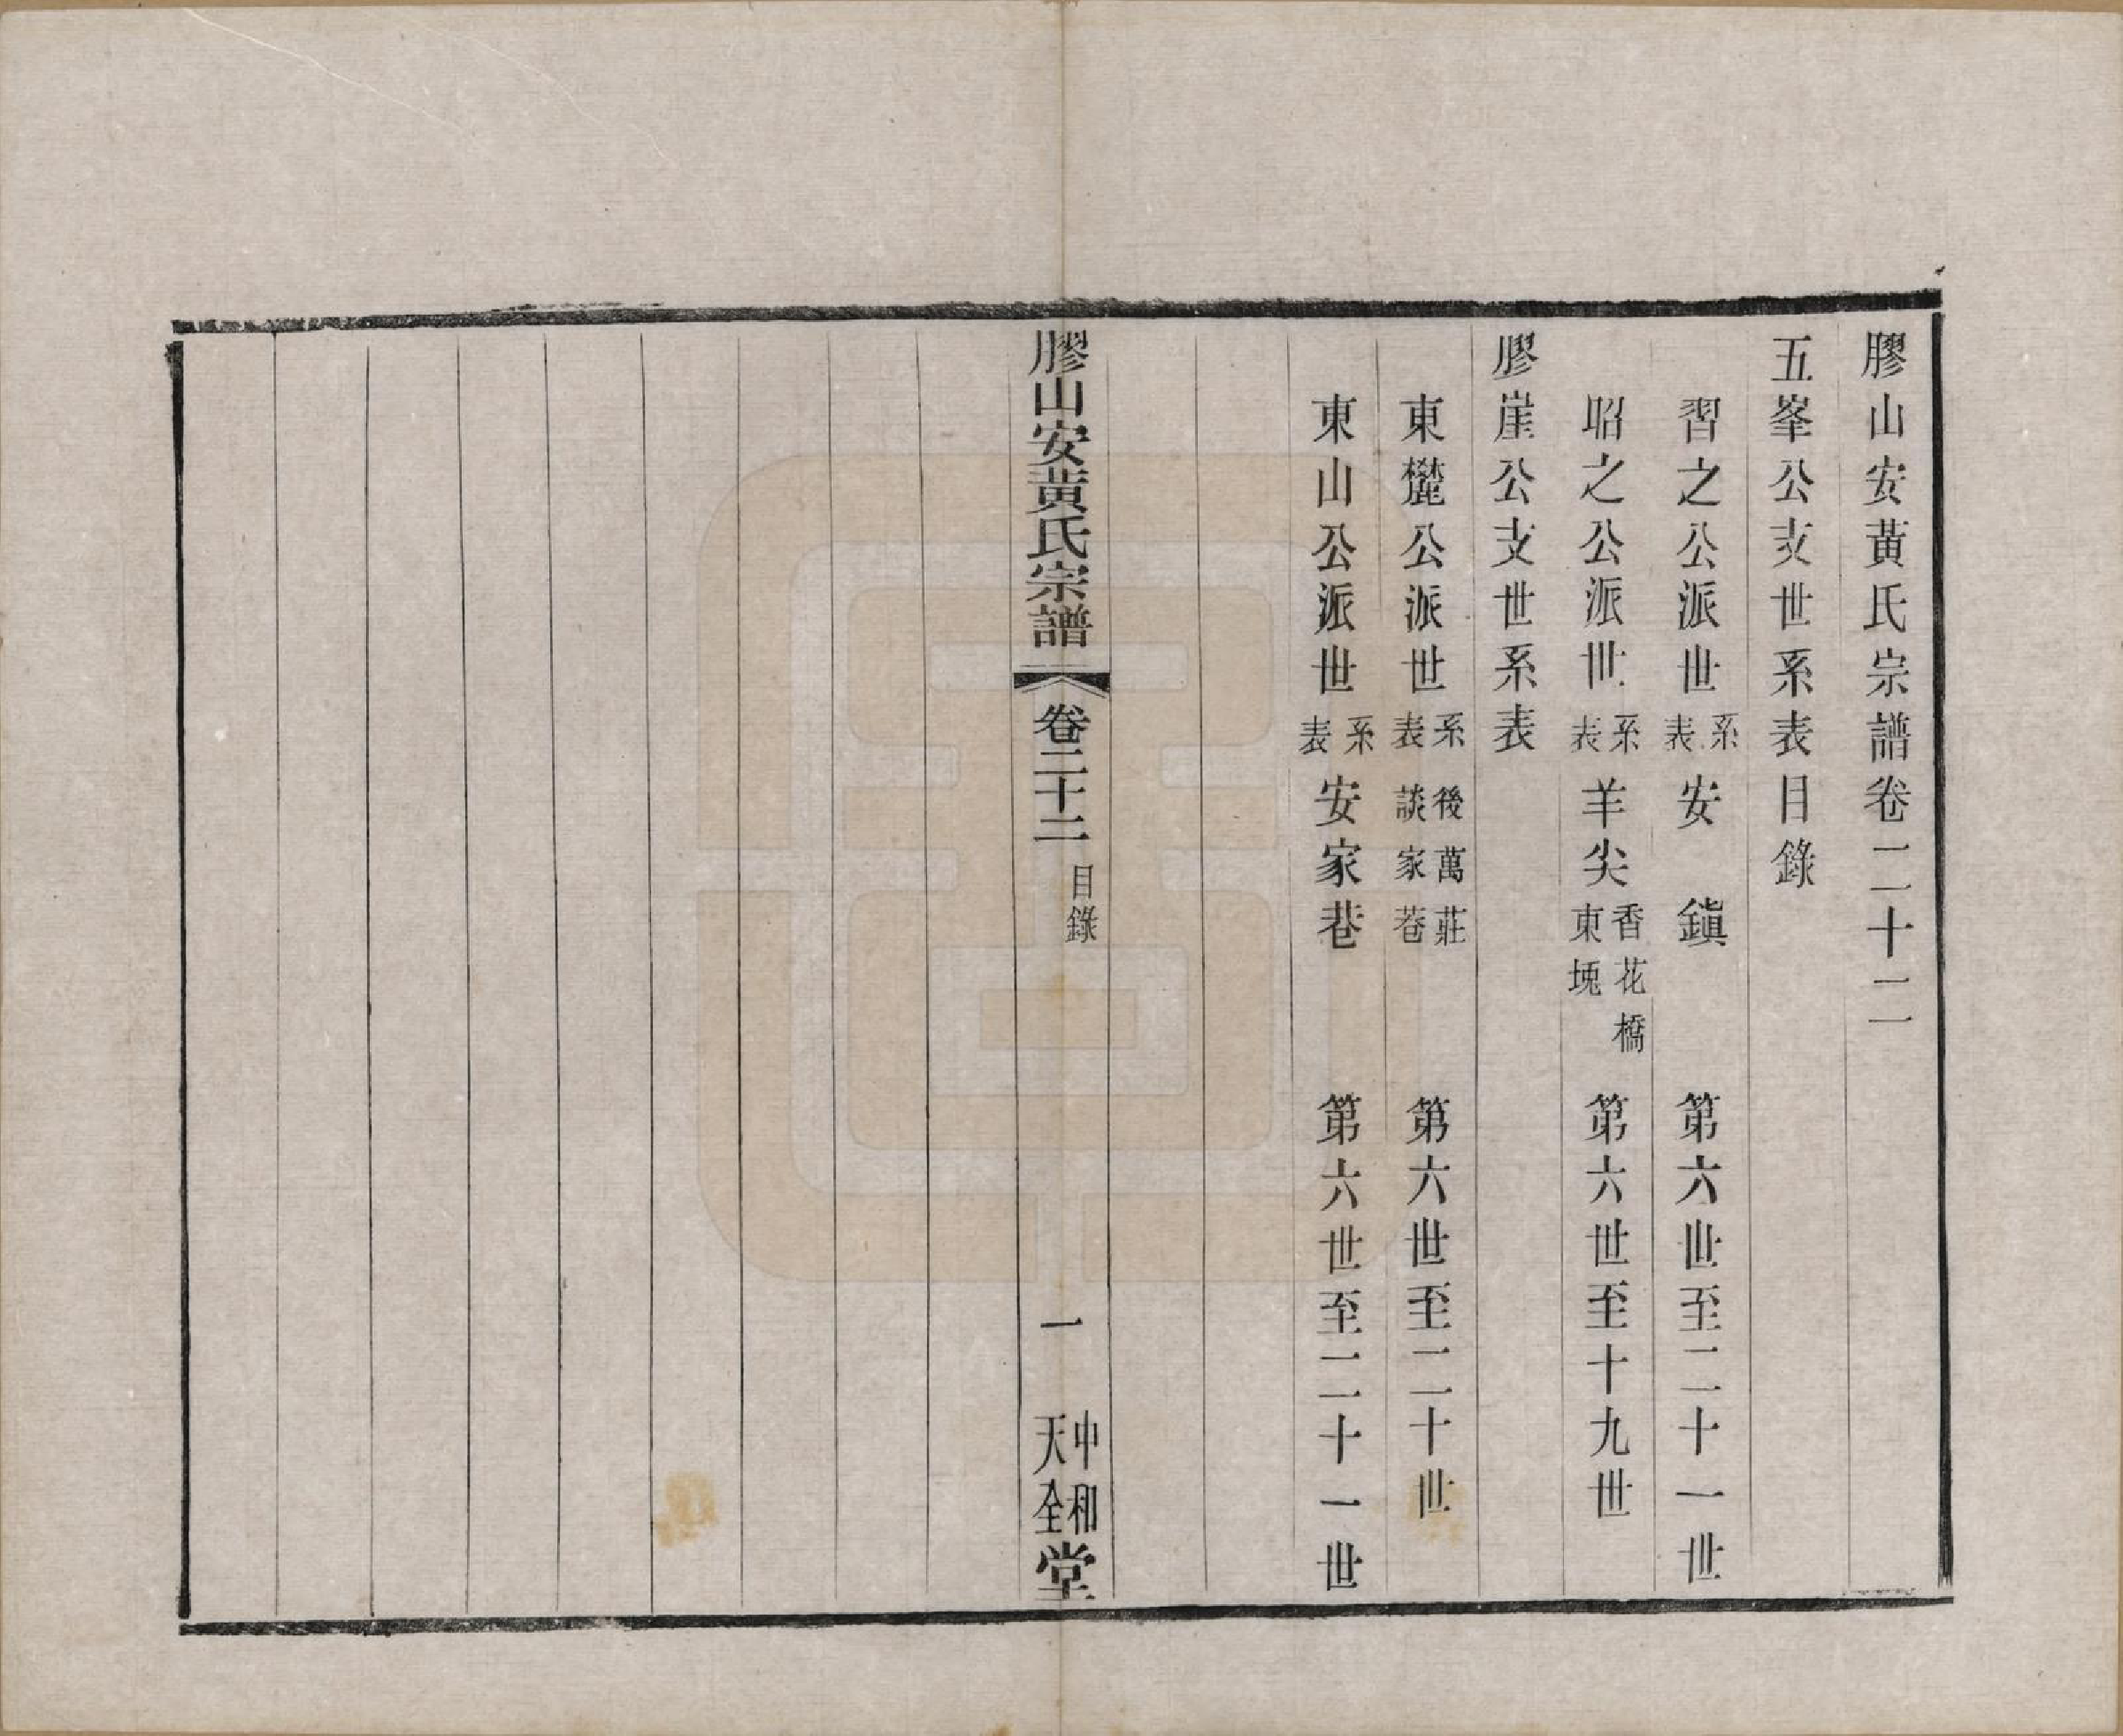 膠山安黃氏宗譜卷二十二
五峯公支世系表目錄
習之公派世系表安鎭 第六世至二十一世
昭之公派世系表羊尖香花橋東堍 第六世至十九世
膠崖公支世系表
東麓公派世系表後萬莊談家巷 第六世至二十世
東山公派世系表安家巷 第六世至二十一世
膠山安黃氏宗譜 卷二十二 目錄 一 中和天全堂